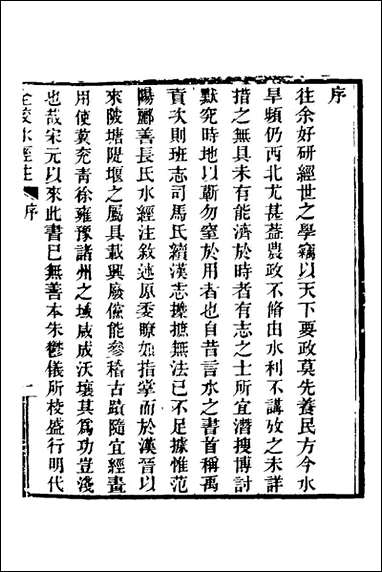 序
往余好研經世之學竊以天下要政莫先養民方今水
旱頻仍西北尤甚葢農政不脩由水利不講攷之未詳
措之無具未有能濟於時者有志之士所宜潛搜博討
默究時地以蘄勿窒於用者也自昔言水之書首稱禹
貢次則班志司馬氏續漢志摭摭無法已不足據惟范
陽酈善長氏水經注敘述原委瞭如指掌而於漢晉以
來陂塘隄堰之屬具載興廢儻能參稽古蹟隨宜經畫
用使冀兖青徐雍豫諸州之域咸成沃壤其爲功豈淺
也哉宋元以來此書已無善本朱鬱儀所校盛行明代
全校水經注 序 一